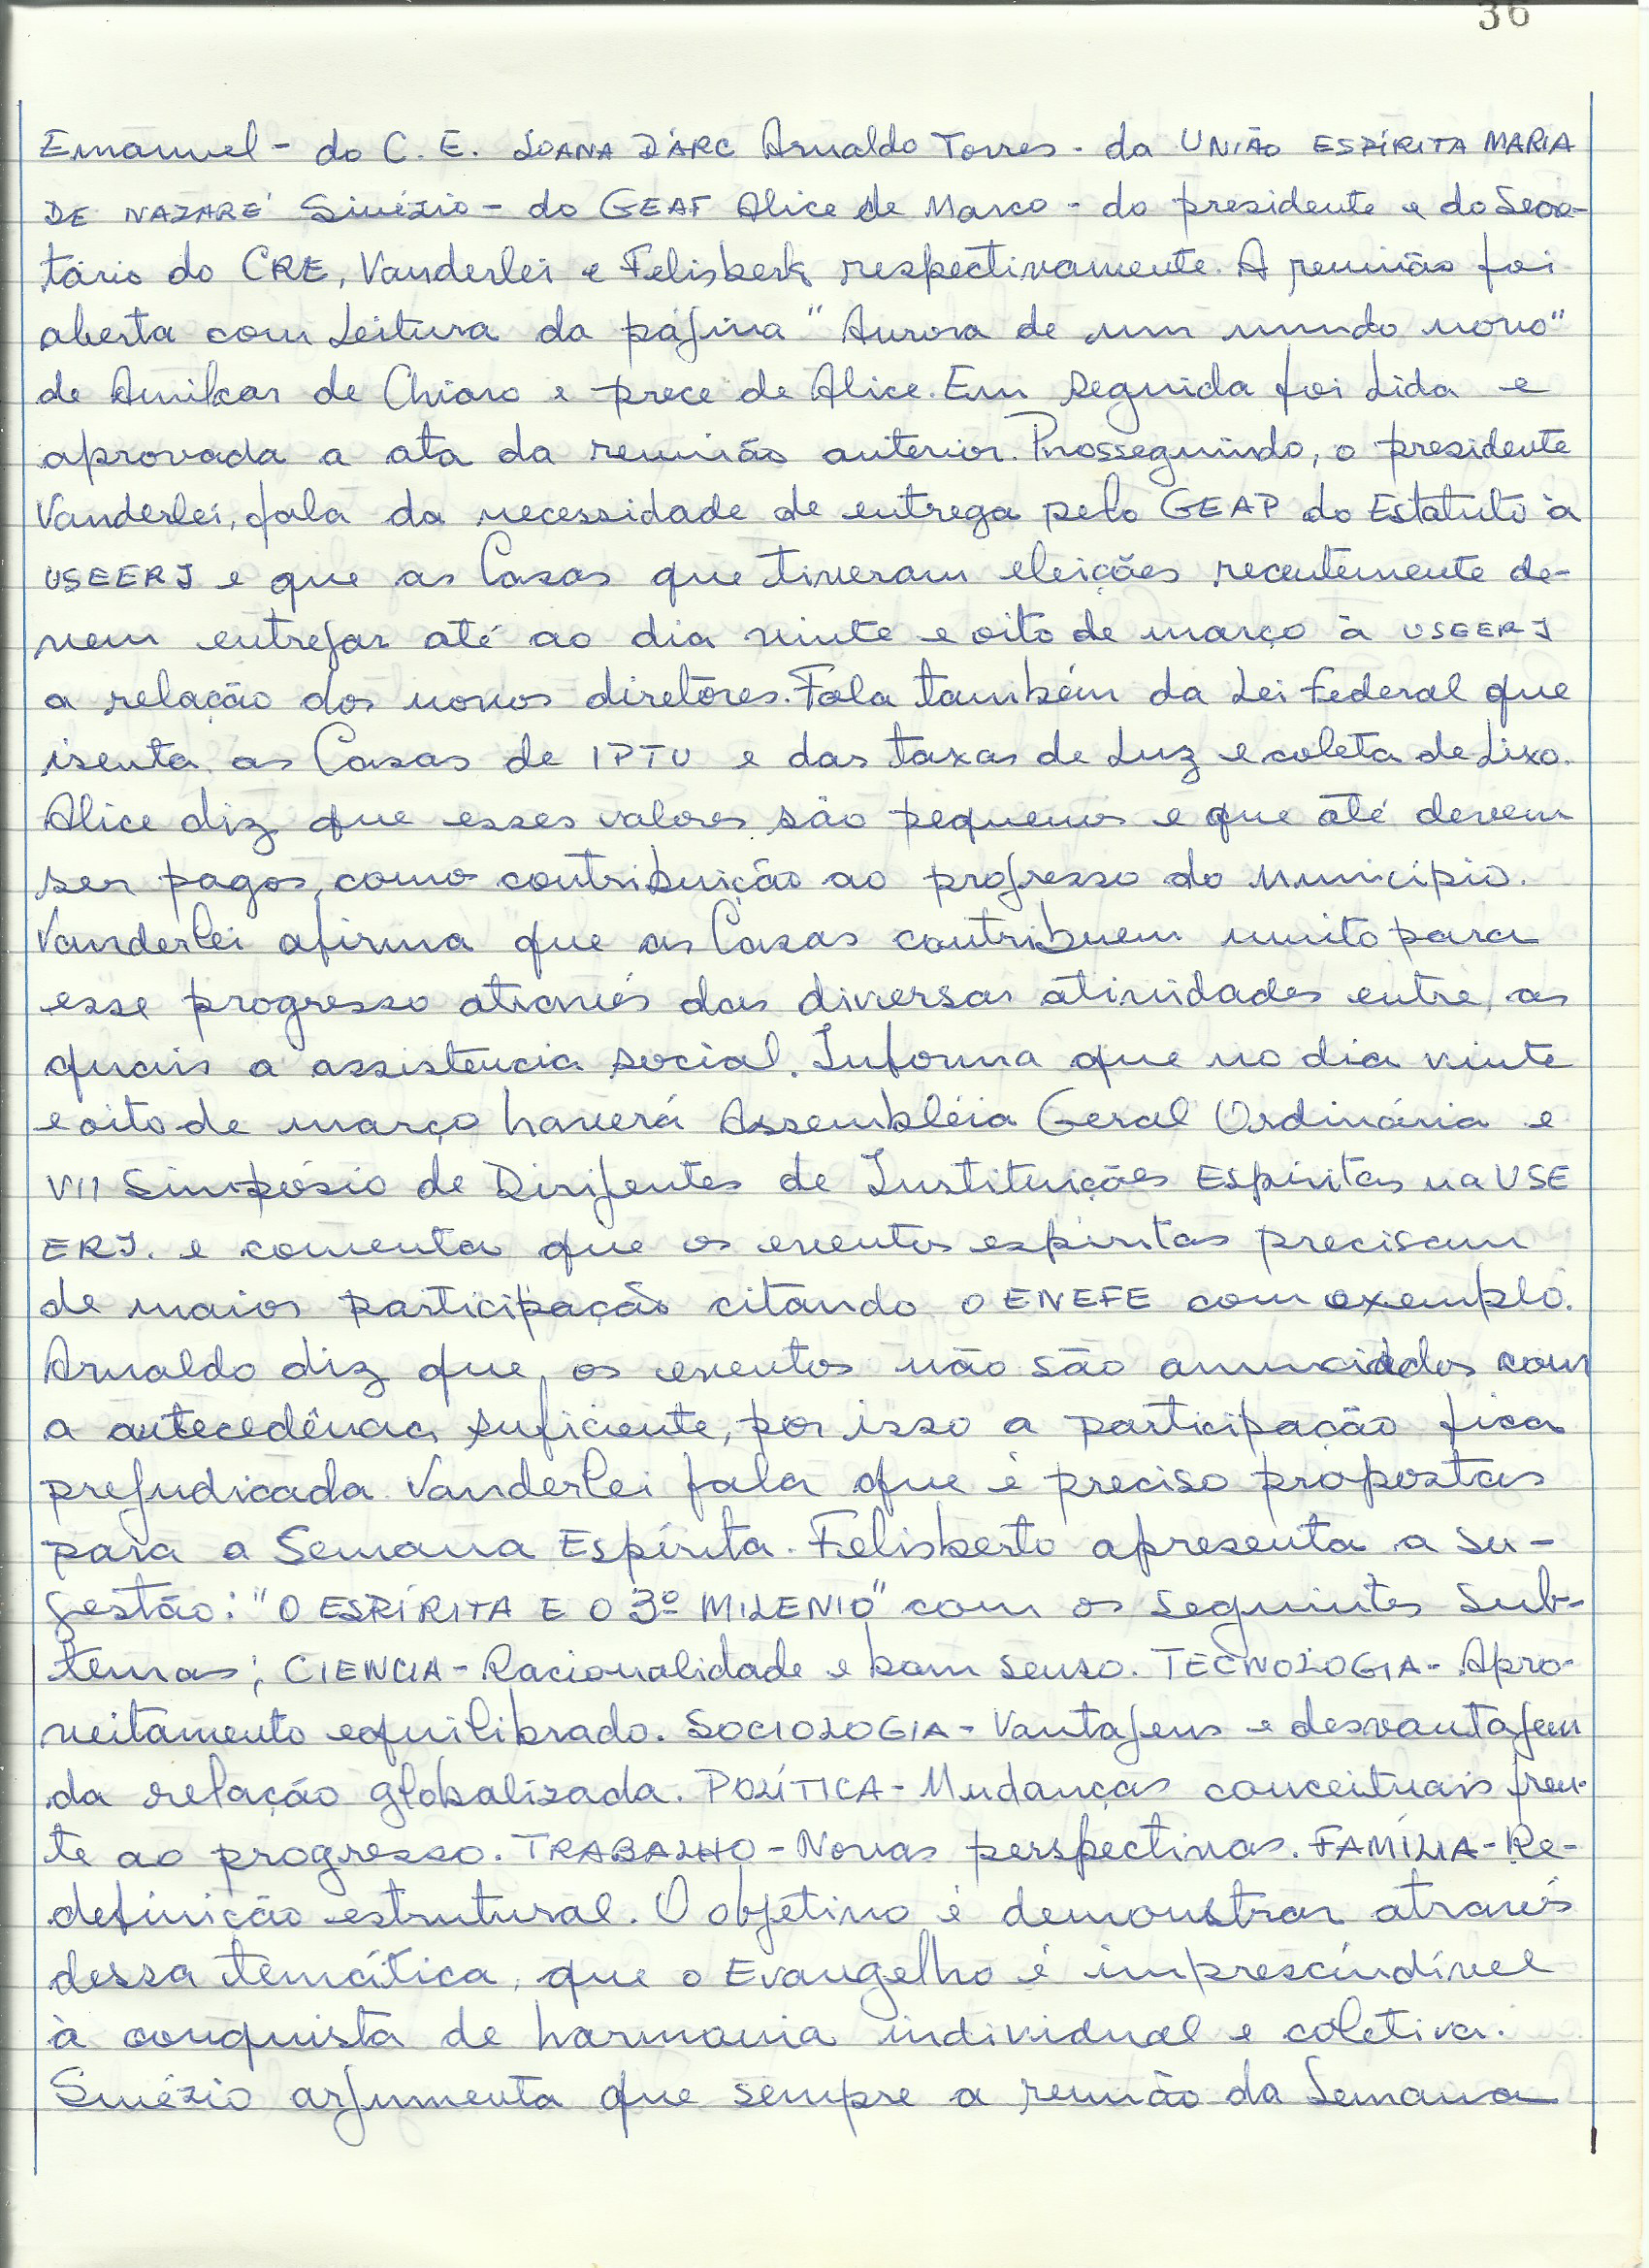 36
Emanuel - do C. E. JOANA D'ARC Arnaldo Torres - da UNIÃO ESPÍRITA MARIA
DE NAZARÉ Sinézio - do GEAF Alice de Marco - do presidente e do Secre-
tário do CRE, Vanderlei e Felisberto respectivamente. A reunião foi
aberta com Leitura da página "Aurora de um mundo novo"
de Amilcar de Chiaro e prece de Alice. Em seguida foi Lida e
aprovada a ata da reunião anterior. Prosseguindo, o presidente
Vanderlei, fala da necessidade de entrega pelo GEAP do Estatuto à
USEERJ e que as Casas que tiveram eleições recentemente de-
vem entregar até ao dia vinte e oito de março à USEERJ
a relação dos novos diretores. Fala também da Lei Federal que
isenta as Casas de IPTU e das taxas de Luz e coleta de Lixo.
Alice diz que esses valores são pequenos e que até devem
ser pagos, como contribuição ao progresso do Município.
Vanderlei afirma que as Casas contribuem muito para
esse progresso através das diversas atividades entre, as
quais a assistencia social. Informa que no dia vinte
e oito de março haverá Assembléia Geral Ordinária e
VII Simpósio de Dirigentes de Instituições Espíritas na USE
ERJ. e comenta que os eventos espíritas precisam
de maior participação citando o ENEFE com exemplo.
Arnaldo diz que, os eventos não são anunciados com
a antecedência suficiente, por isso a participação fica
prejudicada Vanderlei fala que é preciso propostas
para a Semana Espírita. Felisberto apresenta a su-
gestão: "O ESPÍRITA E O 3º MILENIO" com os seguintes sub-
temas; CIENCIA - Racionalidade e bom senso. TECNOLOGIA - Apro-
veitamento equilibrado. SOCIOLOGIA - Vantagens e desvantagem
da relação globalizada. POLÍTICA - Mudanças conceituais fren-
te ao progresso. TRABALHO - Novas perspectivas. FAMÍLIA - Re-
definição estrutural. O objetivo é demonstrar através
dessa temática, que o Evangelho é imprescíndível
à conquista de harmonia individual e coletiva.
Sinézio argumenta que sempre a reunião da Semana